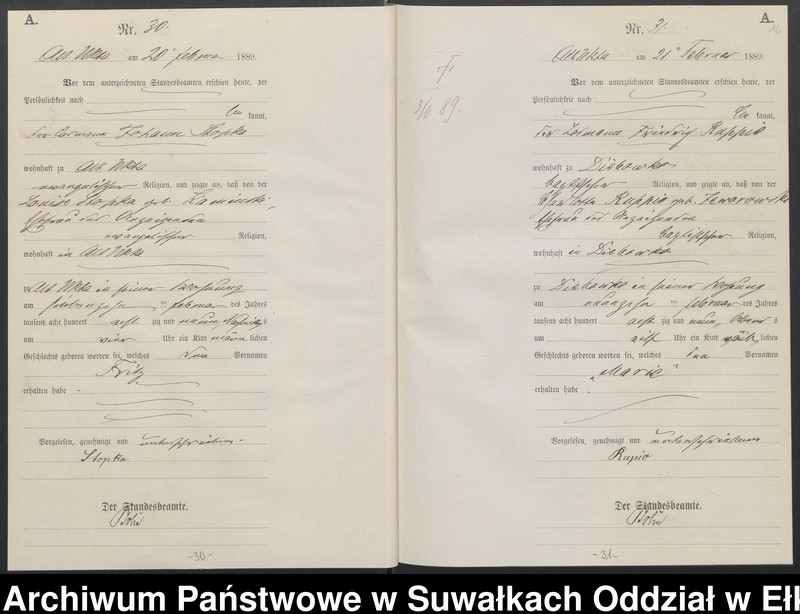 A.
Nr. 30.
Alt Ukta am 20ᵗ Februar 1889.
Vor dem unterzeichneten Standesbeamten erschien heute, der
Persönlichkeit nach
be kannt,
der Losmann Johann Stopka
wohnhaft zu Alt Ukta
evangelischer Religion, und zeigte an, daß von der
Louise Stopka geb. Kaminski,
Ehefrau des Anzeigenden
evangelischer Religion,
wohnhaft in Alt Ukta
zu Alt Ukta in seiner Wohnung
am siebenzehn ten Februar des Jahres
tausend acht hundert acht zig und neun Nachmittags
um vier Uhr ein Kind männ lichen
Geschlechts geboren worden sei, welches den Vornamen
Fritz
erhalten habe.
Vorgelesen, genehmigt und unterschrieben.
Stopka
Der Standesbeamte.
-30-
3/6. 89.
A.
16
Nr. 31.
Alt Ukta am 21ᵗ Februar 1889.
Vor dem unterzeichneten Standesbeamten erschien heute, der
Persönlichkeit nach
be kannt,
der Losmann Friedrich Ruppio
wohnhaft zu Diebowko
baptistischer Religion, und zeigte an, daß von der
Charlotta Ruppio geb.
Ehefrau des Anzeigenden
baptistischer Religion,
wohnhaft in Diebowko
zu Diebowko in seiner Wohnung
am neunzehn ten Februar des Jahres
tausend acht hundert acht zig und neun, Abends
um elf Uhr ein Kind weib lichen
Geschlechts geboren worden sei, welches den Vornamen
"Marie"
erhalten habe.
Vorgelesen, genehmigt und unterschrieben
Rupio
Der Standesbeamte.
-31-
Archiwum Państwowe w Suwałkach Oddział w Ełk